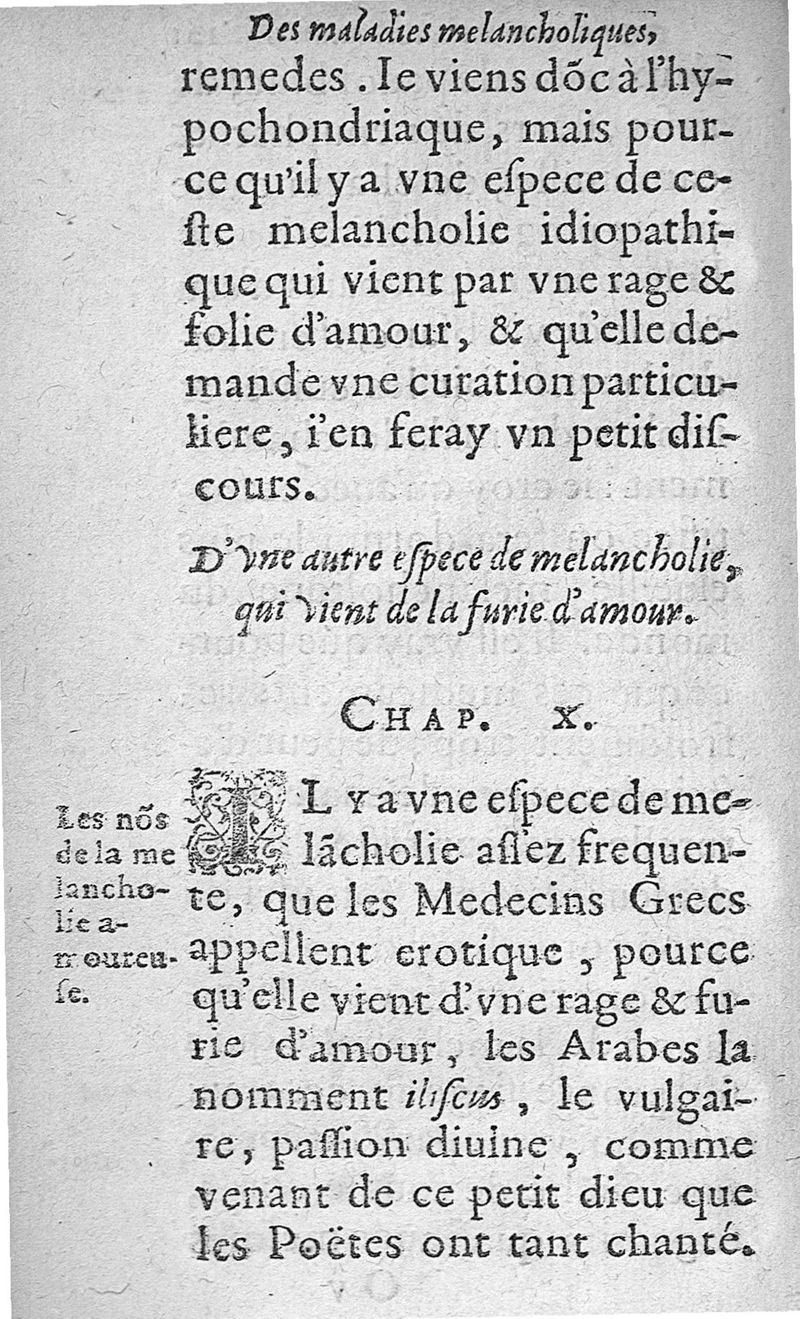 Des maladies melancholiques,
remedes . Ie viens dõc à l'hy-
pochondriaque, mais pour-
ce qu'il y a vne eſpece de ce-
ſte melancholie idiopathi-
que qui vient par vne rage &
folie d'amour, & qu'elle de-
mande vne curation particu-
liere, i'en feray vn petit diſ-
cours.
D'vne autre eſpece de melancholie,
qui vient de la furie d'amour.
CHAP. X.
IL Y a vne eſpece de me-
lãcholie aſſez frequen-
te, que les Medecins Grecs
appellent erotique , pource
qu'elle vient d'vne rage & fu-
rie d'amour, les Arabes la
nomment iliſcus , le vulgai-
re, paſſion diuine , comme
venant de ce petit dieu que
les Poëtes ont tant chanté.
Les nõs
de la me
lancho-
lie a-
moureu-
ſe.